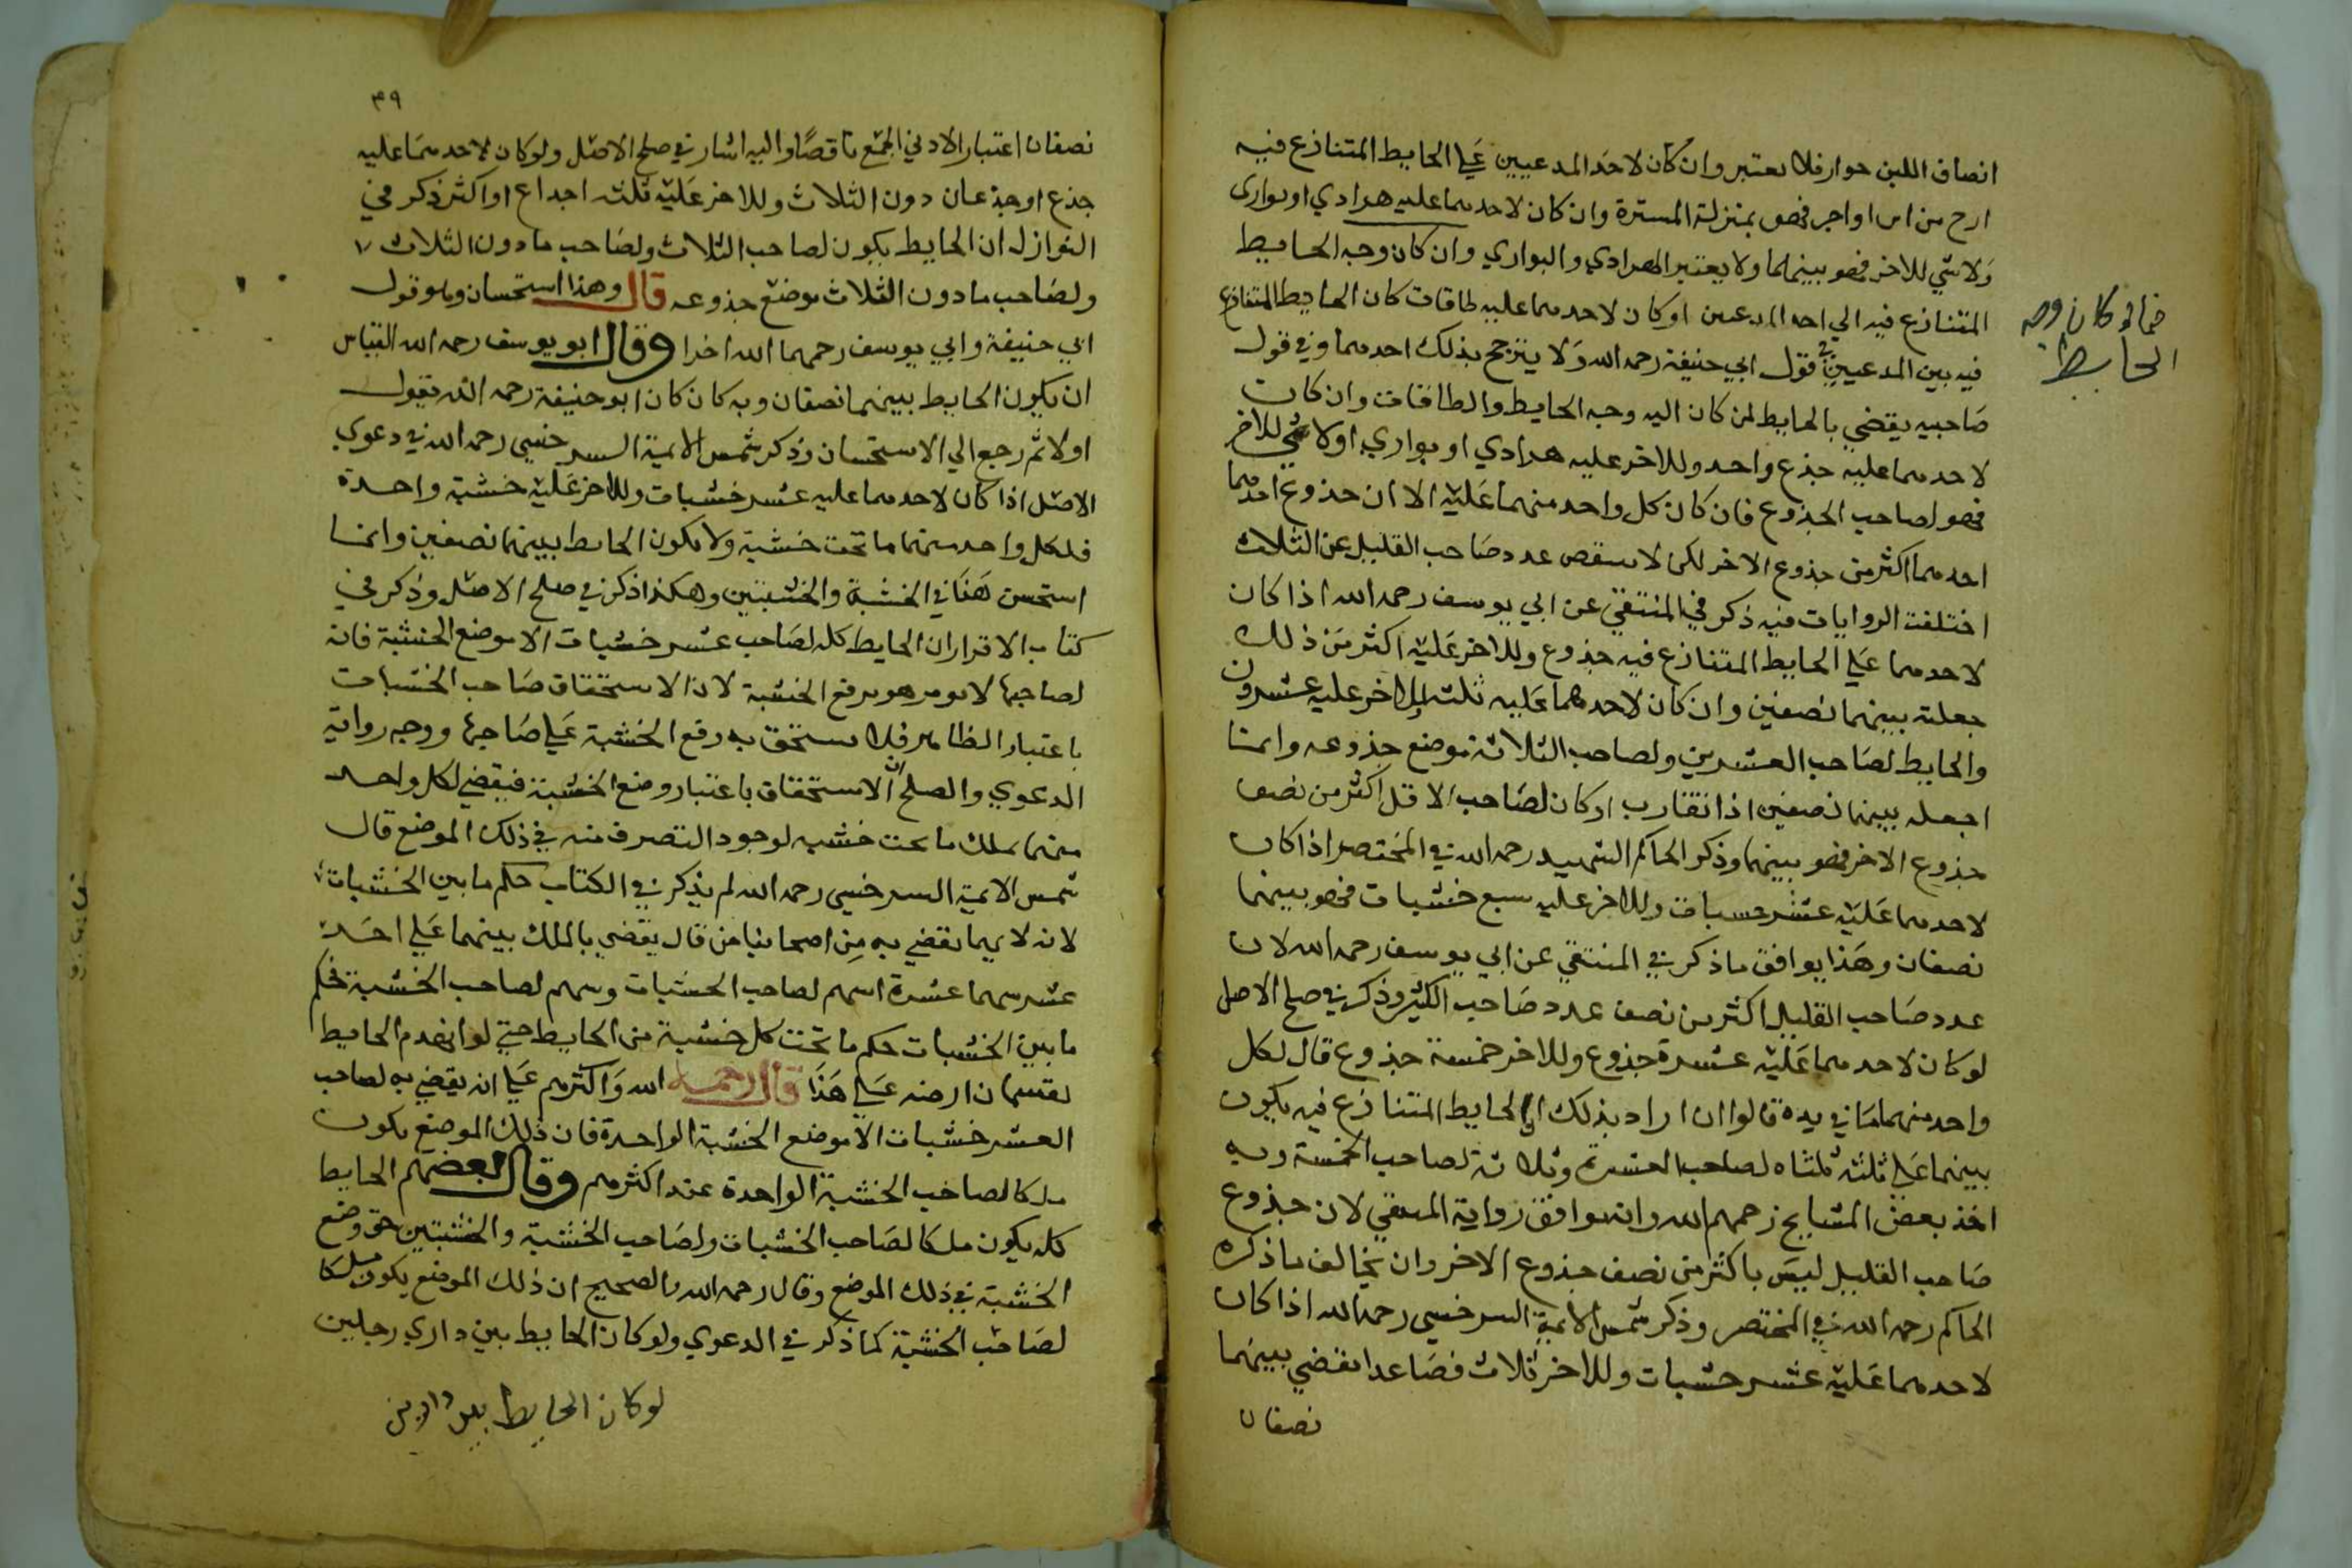 انصاف اللبن حوار فلا يعتبر وان كان لاحد المدعيين علي الحايط المتنازع فيه
ارح من اس او اجر فهو بمنزلة المسترة وان كان لاحدهما عليه هرادي او بواري
ولا شي للاخر فهو بينهما ولا يعتبر الهرادي والبواري وان كان وجه الحايط
المتنازع فيه الي احد المدعين او كان لاحدهما عليه طاقات كان الحايط المتنازع
فيما لو كان وجه
الحايط
فيه بين المدعيين في قول ابي حنيفة رحمه الله ولا يترجح بذلك احدهما وفي قول
صاحبيه يقضي بالحايط لمن كان اليه وجه الحايط والطاقات وان كان
لاحدهما عليه جذع واحد وللاخر عليه هرادي او بواري اولا شي للاخر
فهو لصاحب الجذوع فان كان كل واحد منهما عليه الا ان جذوع احدهما
احدهما اكثر من جذوع الاخر لكن لا ينقص عدد صاحب القليل عن الثلاث
اختلفت الروايات فيه ذكر في المنتقي عن ابي يوسف رحمه الله اذا كان
لاحدهما علي الحايط المتنازع فيه جذوع وللاخر عليه اكثر من ذلك
جعلته بينهما نصفين وان كان لاحدهما عليه ثلثه وللاخر عليه عشرون
والحايط لصاحب العشرين ولصاحب الثلاثة موضع جذوعه وانما
اجعله بينهما نصفين اذا تقارب او كان لصاحب الاقل اكثر من نصف
جذوع الاخر فهو بينهما وذكر الحاكم الشهيد رحمه الله في المختصر اذا كان
لاحدهما عليه عشر خسبات وللاخر عليه سبع خشبات فهو بينهما
نصفان وهذا يوافق ما ذكر في المنتقي عن ابي يوسف رحمه الله لان
عدد صاحب القليل اكثر من نصف عدد صاحب الكثير وذكر في صلح الاصل
لو كان لاحدهما عليه عشرة جذوع وللاخر خمسة جذوع قال لكل
واحد منهما ما في يده قالوا ان اراد بذلك الحايط المتنازع فيه يكون
بينهما علي ثلثه ثلثاه لصاحب العشرة وثلاثة لصاحب الخمسة وبه
اخذ بعض المشايخ رحمهم الله وانه يوافق رواية المنتقي لان جذوع
صاحب القليل ليس باكثر من نصف جذوع الاخر وان يخالف ما ذكره
الحاكم رحمه الله في المختصر وذكر شمس الايمة السرخسي رحمه الله اذا كان
لاحدهما عليه عشر خشبات وللاخر ثلاث فصاعدا يقضي بينهما
نصفان
٣٩
نصفان اعتبار الادني الجمع ناقصا واليه اشار في صلح الاصل ولو كان لاحدهما عليه
جذع او جذعان دون الثلاث وللاخر عليه ثلثه اجداع او اكثر ذكر في
النوازل ان الحايط يكون لصاحب الثلاث ولصاحب ما دون الثلاث
ولصاحب ما دون الثلاث موضع جذوعه قال وهذا استحسان وهو قول
ابي حنيفة وابي يوسف رحمهما الله اخرا وقال ابو يوسف رحمه الله القياس
ان يكون الحايط بينهما نصفان وبه كان كان ابو حنيفة رحمه الله يقول
اولا ثم رجع الي الاستحسان وذكر شمس الايمة السرخسي رحمه الله في دعوي
الاصل اذا كان لاحدهما عليه عشر خشبات وللاخر عليه خشبة واحدة
فلكل واحد منهما ما تحت خشبة ولا يكون الحايط بينهما نصفين وانما
استحسن هذا في الخشبة والخشبتين وهكذا ذكر في صلح الاصل وذكر في
كتاب الاقرار ان الحايط كله لصاحب عشر خشبات الا موضع الخشبة فانه
لصاحبها لا يومر هو برفع الخشبة لان الاستحقاق صاحب الخشبات
باعتبار الظاهر فلا يستحق به رفع الخشبة علي صاحبها ووجه رواية
الدعوي والصلح ان الاستحقاق باعتبار وضع الخشبة فيقضي لكل واحد
منهما بملك ما تحت خشبه لوجود التصرف منه في ذلك الموضع قال
شمس الايمة السرخسي رحمه الله لم يذكر في الكتاب حكم ما بين الخشبات
لانه لا بما يقضي به من اصحابنا من قال يقضي بالملك بينهما علي احد
عشر سهما عشرة اسهم لصاحب الخشبات وسهم لصاحب الخشبة فحكم
ما بين الخشبات حكم ما تحت كل خشبة من الحايط حتي لو انهدم الحايط
يقسمان ارضه علي هذا قال رحمه الله واكثرهم علي انه يقضي به لصاحب
العشر خشبات الا موضع الخشبة الواحدة فان ذلك الموضع يكون
ملكا لصاحب الخشبة الواحدة عند اكثرهم وقال بعضهم الحايط
كله يكون ملكا لصاحب الخشبات ولصاحب الخشبة والخشبتين حق وضع
الخشبة في ذلك الموضع وقال رحمه الله والصحيح ان ذلك الموضع يكون ملكا
لصاحب الخشبة كما ذكر في الدعوي ولو كان الحايط بين داري رجلين
لو كان الحايط بين دارين